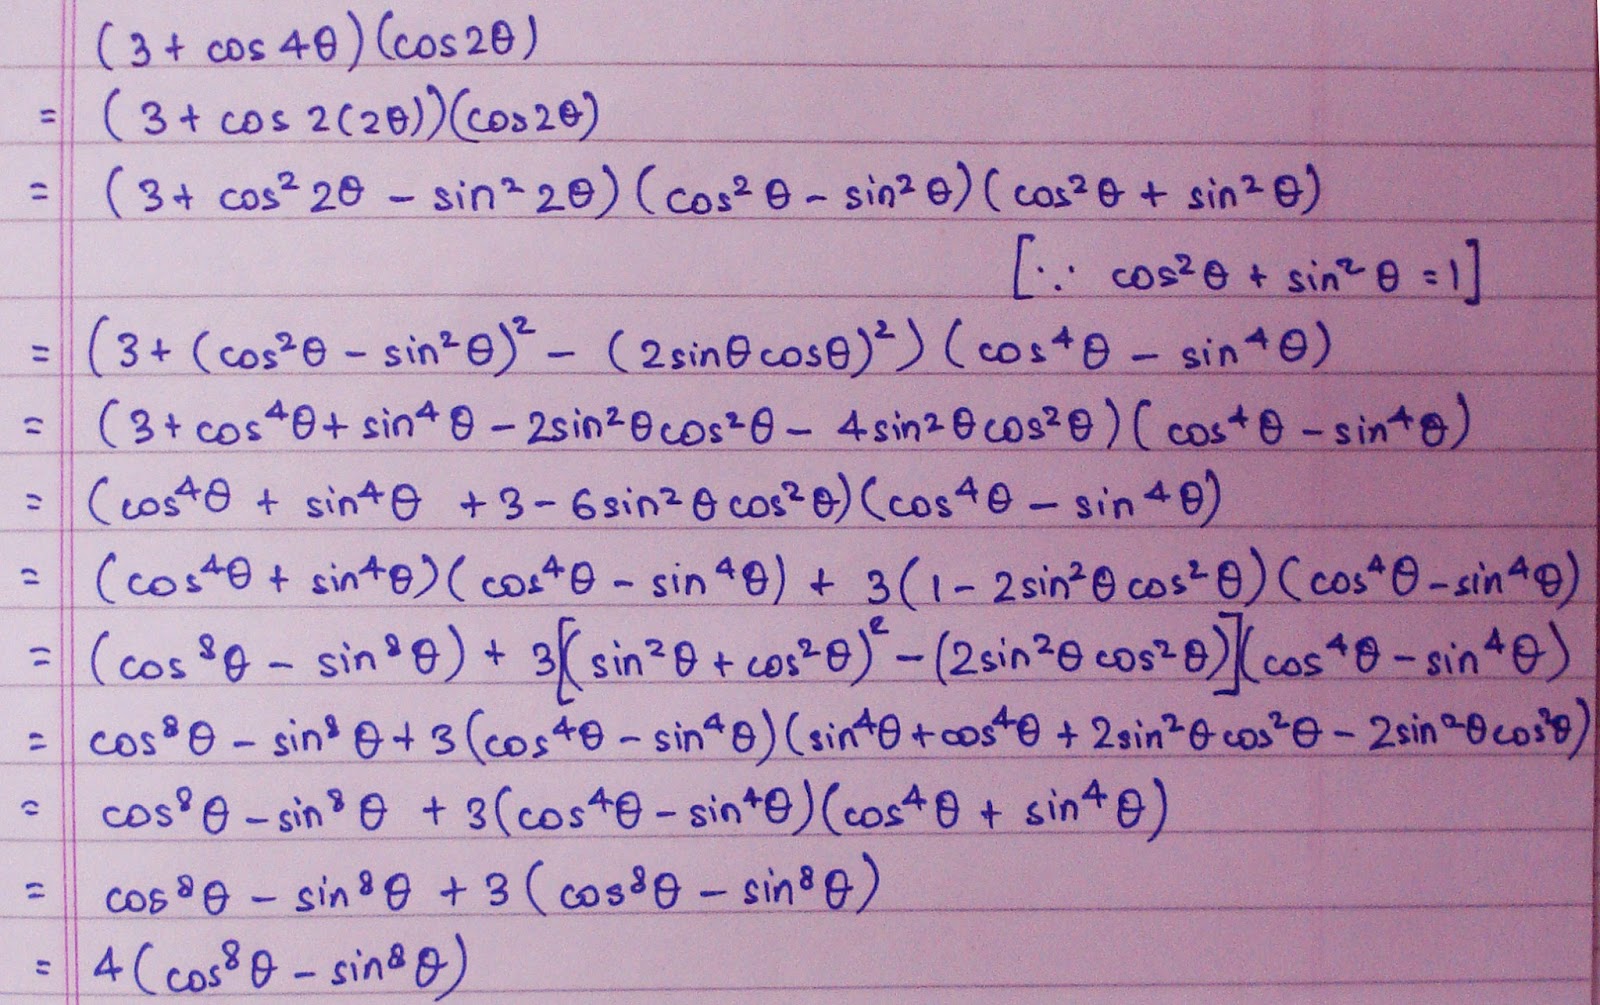 (3 + cos 4θ)(cos2θ)
= (3 + cos 2(2θ))(cos2θ)
= (3 + cos² 2θ − sin² 2θ)(cos² θ − sin² θ)(cos² θ + sin² θ)
[∵ cos² θ + sin² θ = 1]
= (3 + (cos² θ − sin² θ)² − (2sinθcosθ)²)(cos⁴ θ − sin⁴ θ)
= (3 + cos⁴θ + sin⁴ θ − 2sin²θcos²θ − 4sin²θcos²θ)(cos⁴ θ − sin⁴ θ)
= (cos⁴θ + sin⁴ θ + 3 − 6sin² θ cos² θ)(cos⁴ θ − sin⁴ θ)
= (cos⁴θ + sin⁴θ)(cos⁴θ − sin⁴θ) + 3(1 − 2sin²θ cos² θ)(cos⁴ θ − sin⁴θ)
= (cos⁸θ − sin⁸θ) + 3[(sin²θ + cos²θ)² − (2sin²θ cos²θ)](cos⁴θ − sin⁴θ)
= cos⁸ θ − sin⁸ θ + 3(cos⁴θ − sin⁴θ)(sin⁴θ + cos⁴θ + 2sin²θ cos²θ − 2sin²θcos²θ)
= cos⁸ θ − sin⁸ θ + 3(cos⁴θ − sin⁴θ)(cos⁴θ + sin⁴ θ)
= cos⁸θ − sin⁸θ + 3(cos⁸θ − sin⁸ θ)
= 4(cos⁸θ − sin⁸ θ)